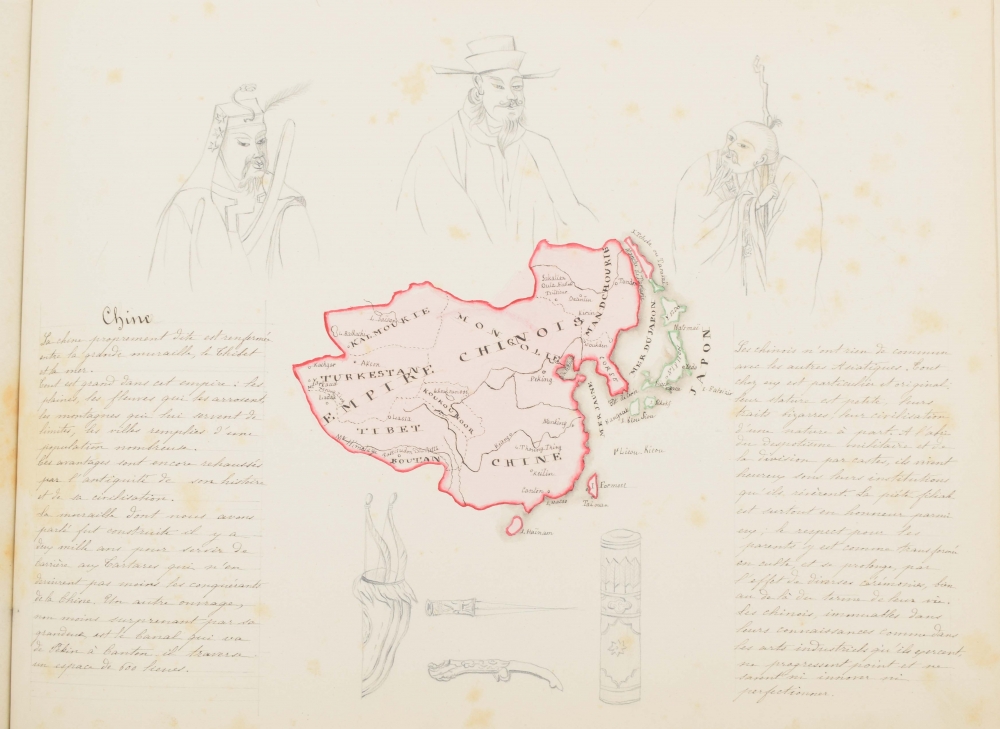 Chine
La chine proprement dite est renfermée
entre la grande muraille, le Thibet
et la mer.
Tout est grand dans cet empire: les
plaines, les fleuves qui les arrosent,
les montagnes qui lui servent de
limites, les villes remplies d'une
population nombreuse.
Ces avantages sont encore rehaussés
par l'antiquité de son histoire
et de sa civilisation.
La muraille dont nous avons
parlé fut construite il y a
deux mille ans pour servir de
barrière aux Tartares qui n'en
devinrent pas moins les conquérants
de la Chine. Un autre ouvrage,
non moins surprenant par sa
grandeur est le Canal qui va
de Pékin à Canton. il traverse
un espace de 600 lieues.
EMPIRE CHINOIS
KALMOUKIE
MONGOLIE
MANDCHOURIE
TURKESTAN
KOUKOUNOOR
TIBET
BOUTAN
CHINE
CORÉE
MER DU JAPON
MER JAUNE
JAPON
Peking
Nanking
Canton
Macao
Lassa
Aksou
Formose
Taïwan
I. Haïnam
Pt Liou-Kiou
Les chinois n'ont rien de commun
avec les autres Asiatiques. Tous
chez eux est particulier et original:
leur stature est petite, leurs
traits bizarres, leur civilisation
d'une nature à part. A l'abri
du despotisme militaire et de
la division par castes, ils vivent
heureux sous leurs institutions
qu'ils révèrent. La piété filiale
est surtout en honneur parmi
eux, le respect pour les
parents y est comme transformé
en culte, et se prolonge, par
l'effet de diverses cérémonies, bien
au de là du terme de leur vie.
Les chinois, immuables dans
leurs connaissances comme dans
les arts industriels qu'ils exercent
ne progressent point et ne
savent ni innover ni
perfectionner.